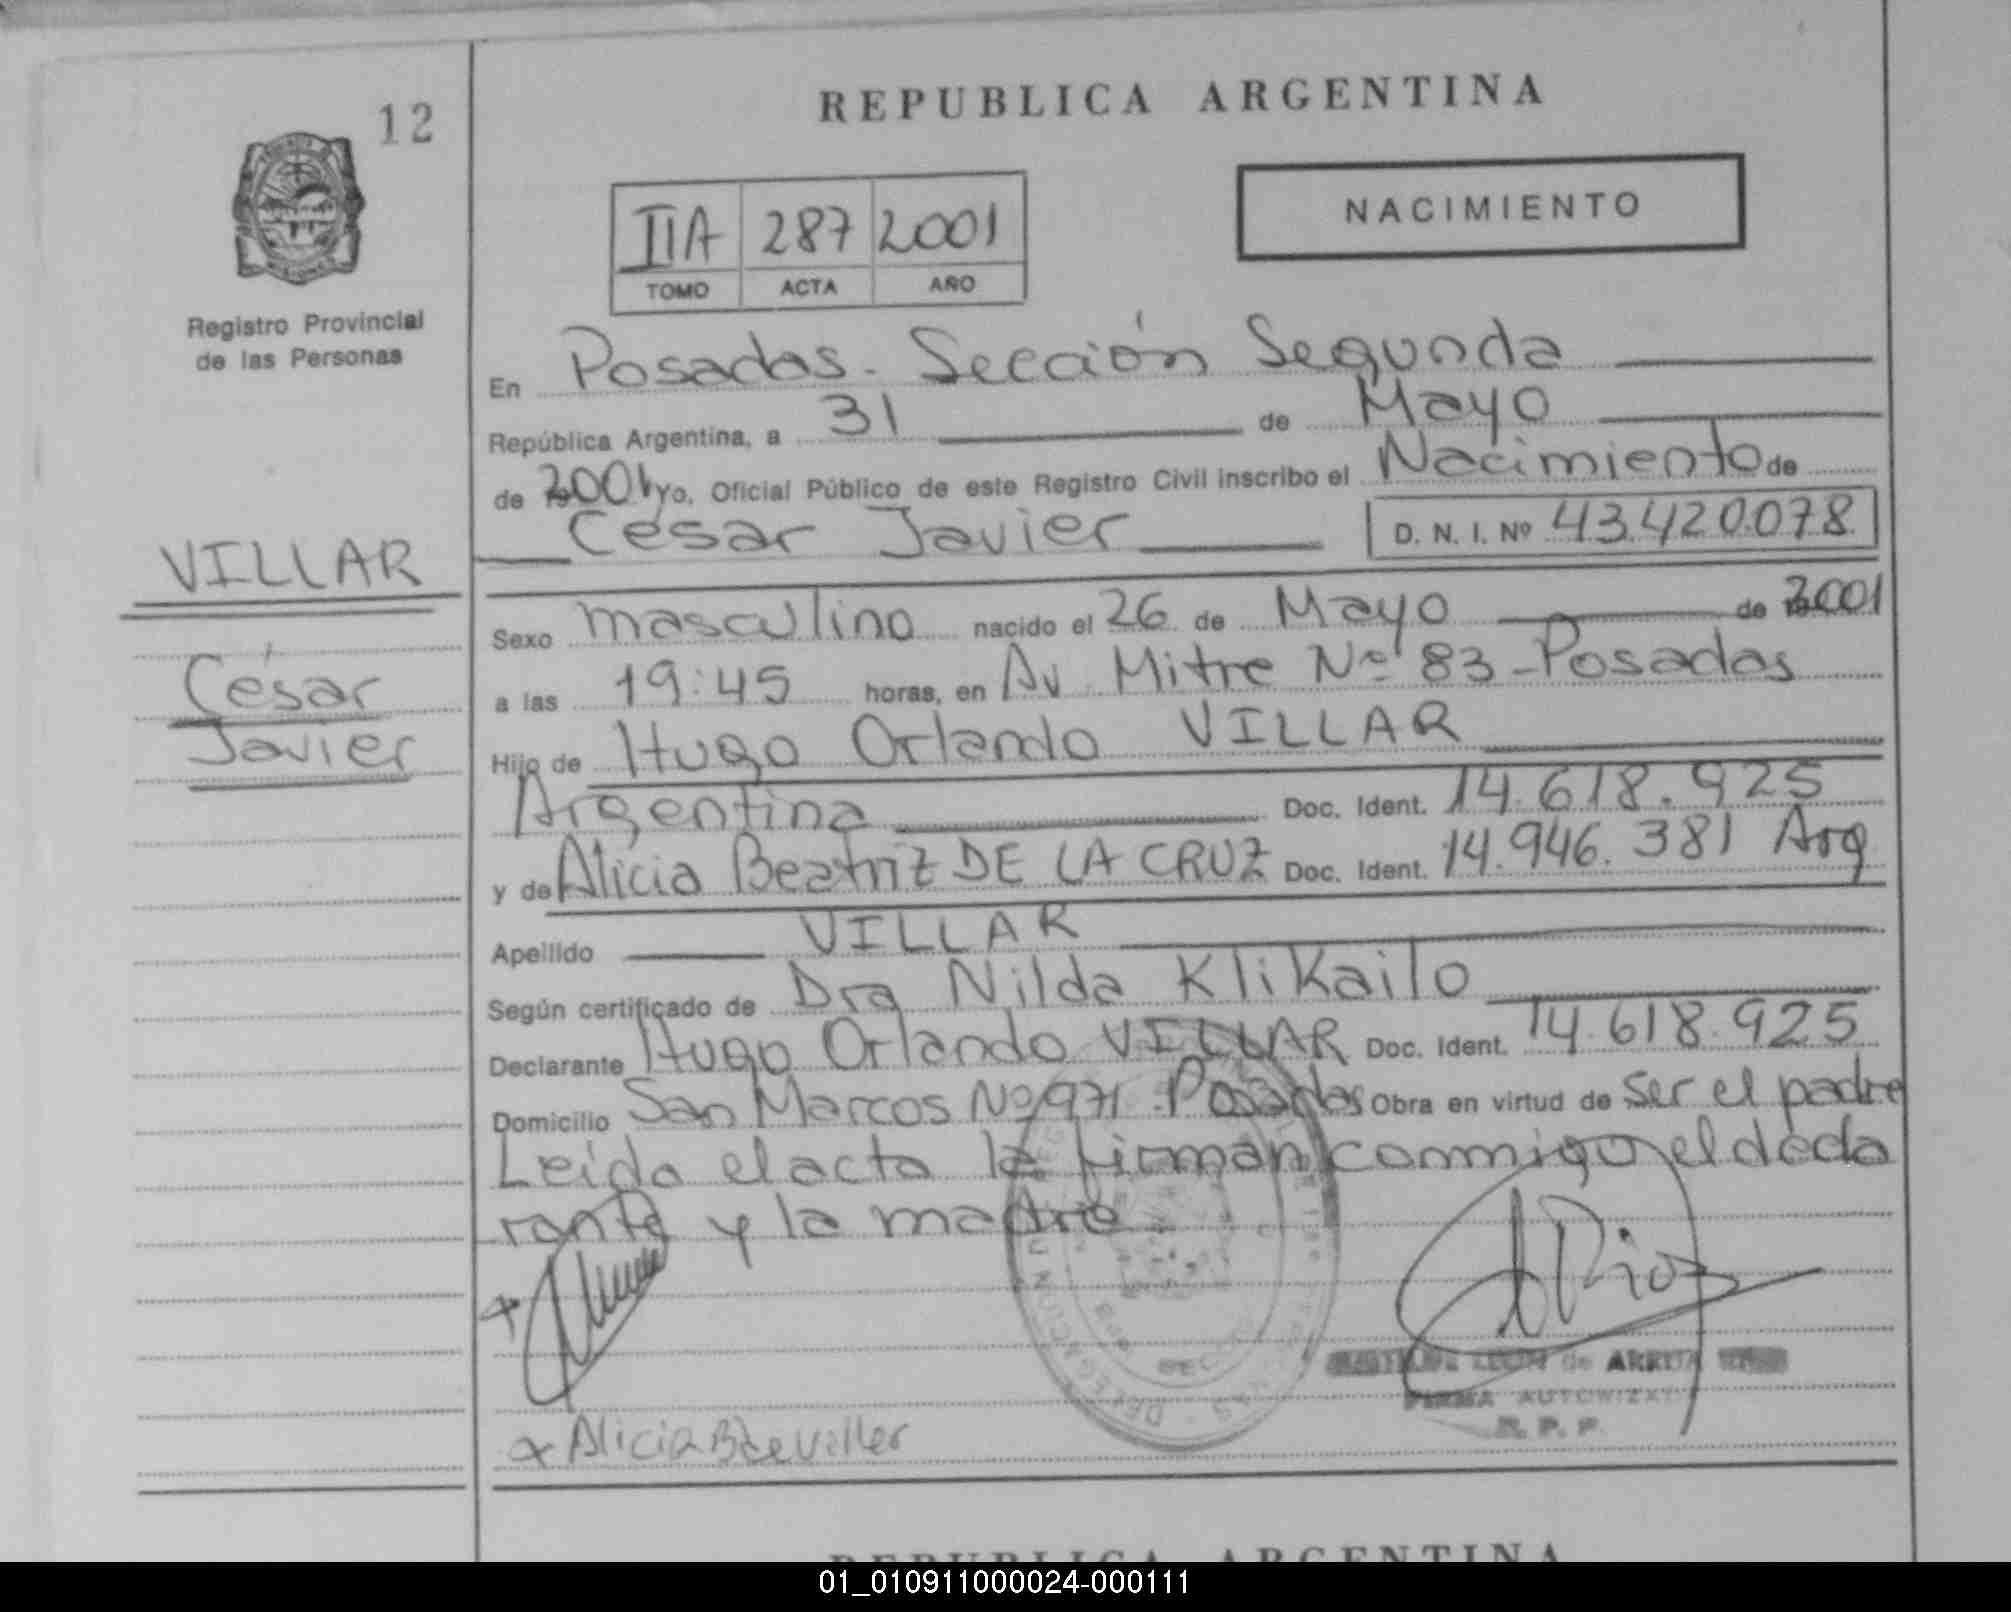 12
REPUBLICA ARGENTINA
NACIMIENTO
IIA 287 2001
TOMO ACTA AÑO
Registro Provincial
de las Personas
En Posadas. Sección Segunda
República Argentina, a 31 de Mayo
de 2001 yo, Oficial Público de este Registro Civil inscribo el Nacimiento de
César Javier D. N. I. Nº 43.420.078
VILLAR
César
Javier
Sexo masculino nacido el 26 de Mayo de 2001
a las 19:45 horas, en Av Mitre Nº 83 - Posadas
Hijo de Hugo Orlando VILLAR
Argentina Doc. Ident. 14.618.925
y de Alicia Beatriz DE LA CRUZ Doc. Ident. 14.946.381 Arg
Apellido VILLAR
Según certificado de Dra Nilda Klikailo
Declarante Hugo Orlando VILLAR Doc. Ident. 14.618.925
Domicilio San Marcos Nº 971 - Posadas Obra en virtud de ser el padre
Leida el acta la firman conmigo el decla
rante y la madre.
A Rios
LEON de ARRUA
FIRMA AUTORIZADA
R. P. P.
x Alicia B de Villar
REPUBLICA ARGENTINA
01_010911000024-000111